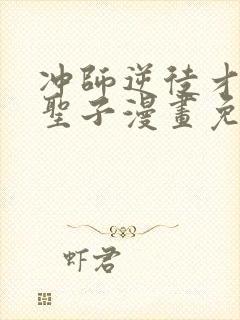 冲師逆徒才
聖子漫畫免
虾君